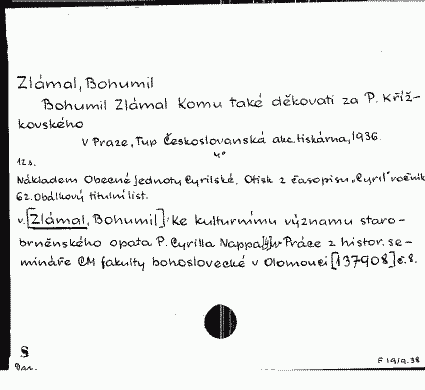 Zlámal, Bohumil
Bohumil Zlámal Komu také děkovati za P. Kříž-
kovského
V Praze, Typ Československá akc. tiskárna, 1936.
4°
12 s.
Nákladem Obecné Jednoty Cyrilské. Otisk z časopisu „Cyril" ročník
62. Obálkový titulní list.
v. [Zlámal, Bohumil]: Ke kulturnímu významu staro-
brněnského opata P. Cyrilla Nappa Práce z histor. se-
mináře CM fakulty bohoslovecké v Olomouci [137908] č. 8.
S
Dar.